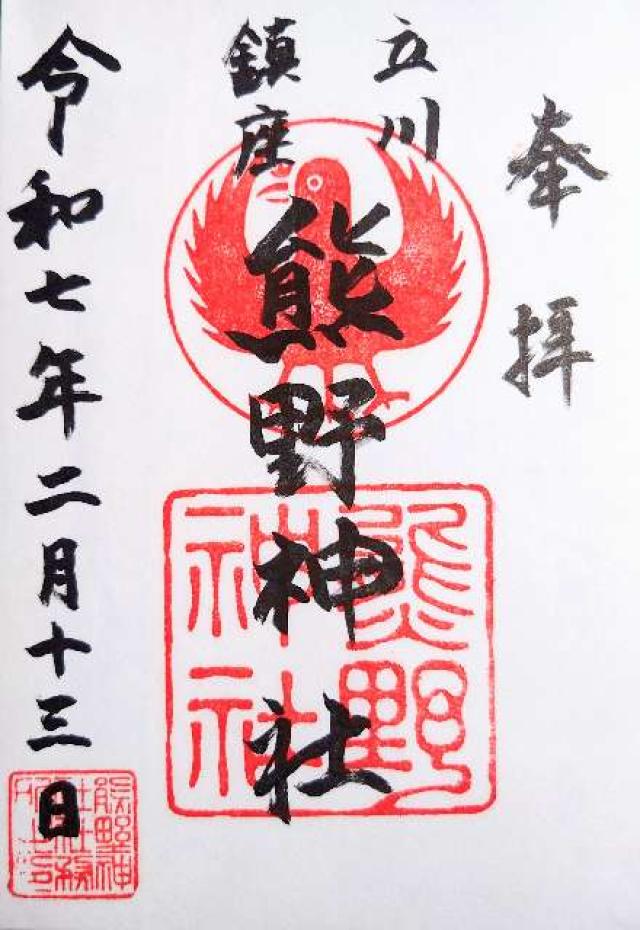 奉拝
立川
鎮座
熊野神社
令和七年二月十三日
熊野
神社